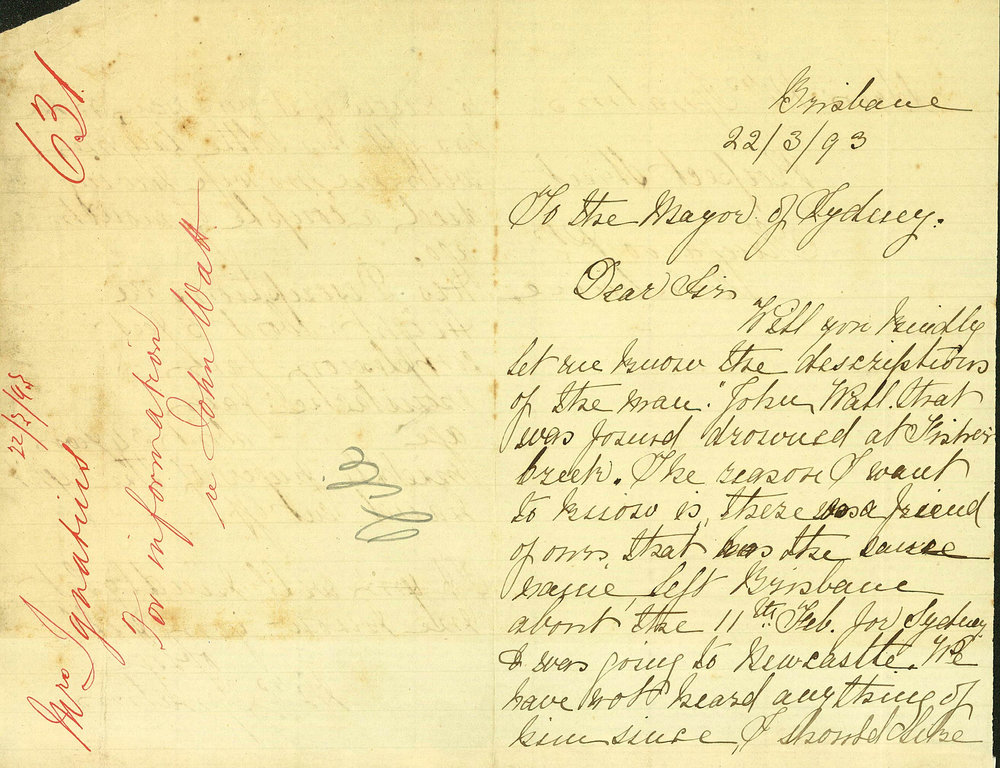 631
Mrs Ignatius 22/3/93
For information
re John Watt
Brisbane
22/3/93
To the Mayor of Sydney.
Dear Sir
Will you kindly
let me know the descriptions
of the man "John Watt. that
was found drowned at Fishers
Creek. The reason I want
to know is, there was a friend
of ours, that has the same
name, left Brisbane
about the 11th Feb. for Sydney
& was going to Newcastle. We
have not heard anything of
him since, I should like